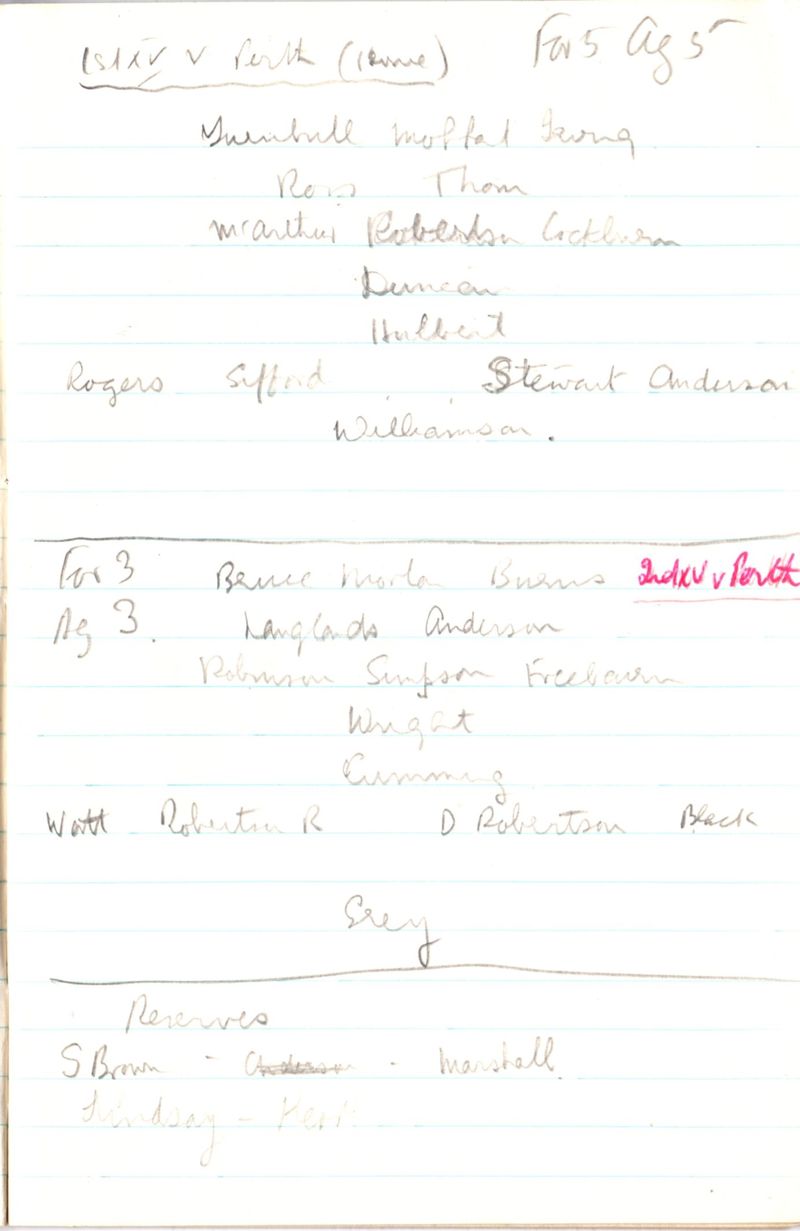 1st XV v Perth (Home) For 5 Ag 5
Turnbull Moffat Irving
Ross Thom
McArthur Robertson Cockburn
Duncan
Hulbert
Rogers Gifford Stewart Anderson
Williamson.
For 3 Bruce Morton Burns 2nd XV v Perth
Ag 3. Langlands Anderson
Robinson Simpson Freebairn
Wright
Cumming
Watt Robertson R D Robertson Black
Grey
Reserves
S Brown - Anderson - Marshall
Lindsay - Kerr